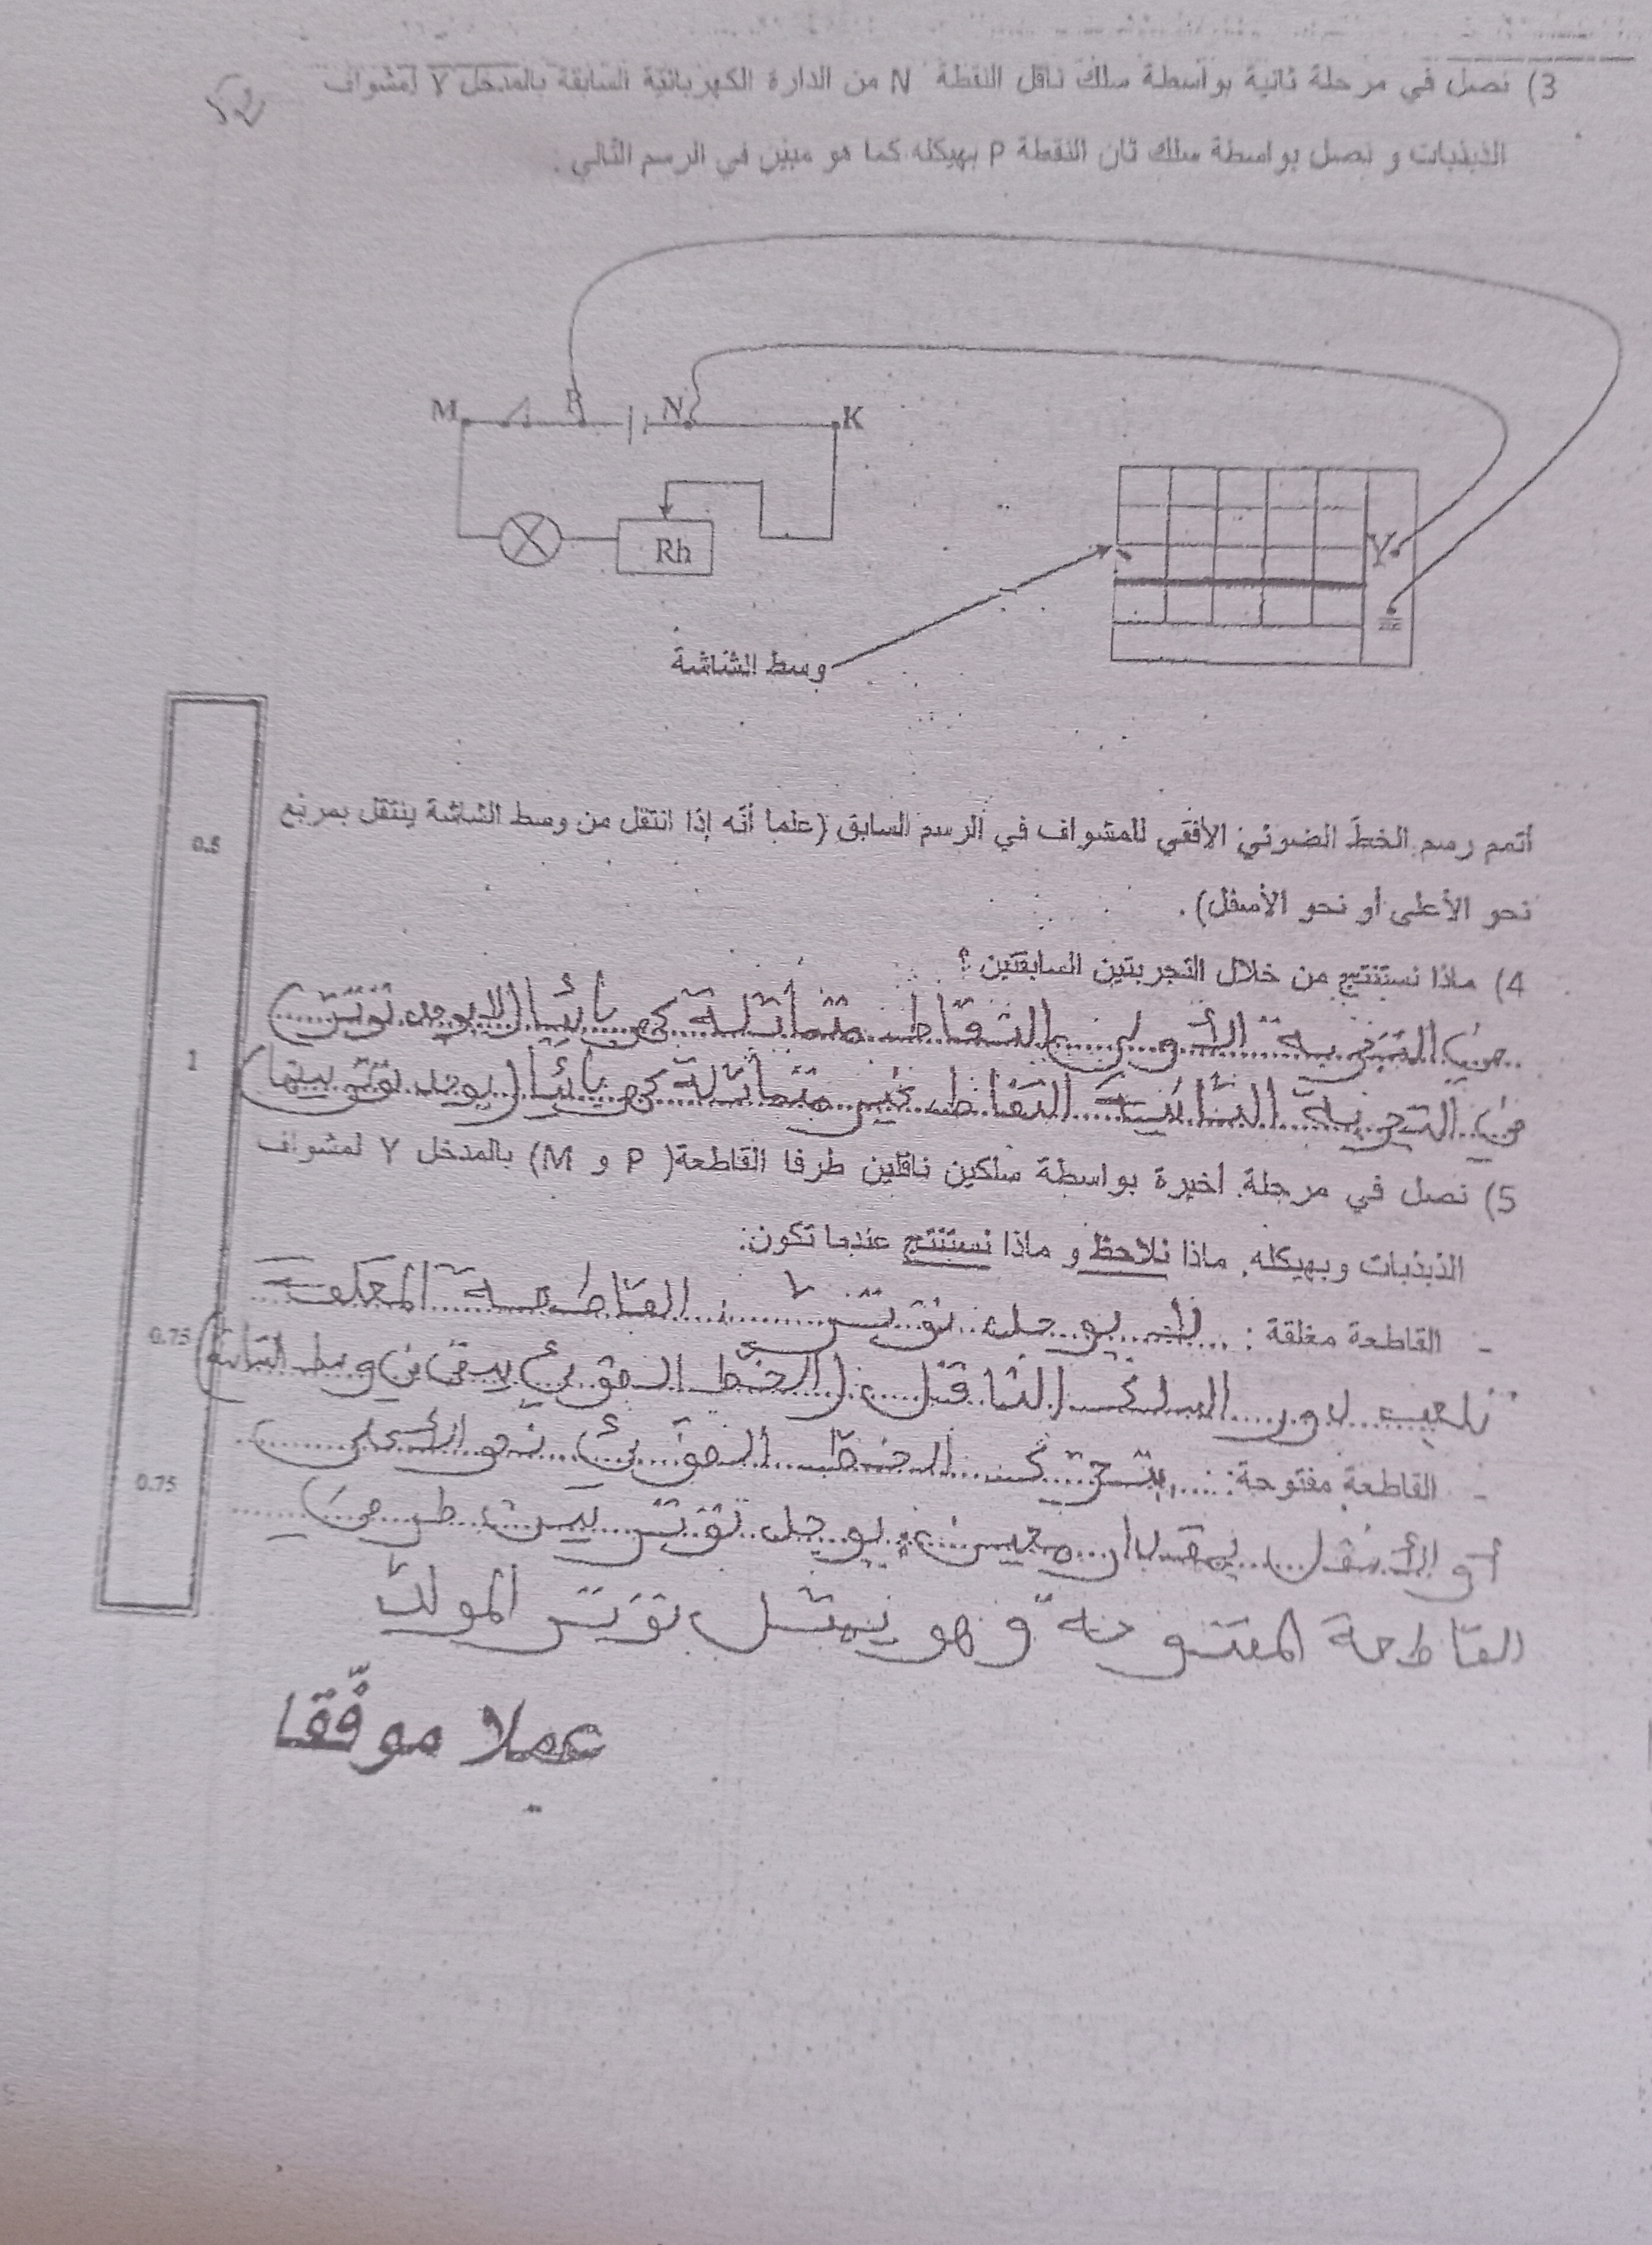 3) نصل في مرحلة ثانية بواسطة سلك ناقل النقطة N من الدارة الكهربائية السابقة بالمدخل Y لمشواف
الذبذبات و نصل بواسطة سلك ثان النقطة P بهيكله كما هو مبين في الرسم التالي .
M P N K
Rh
Y
وسط الشاشة
أتمم رسم الخط الضوئي الأفقي للمشواف في الرسم السابق (علما أنّه إذا انتقل من وسط الشاشة ينتقل بمربع
0.5
نحو الأعلى أو نحو الأسفل) .
4) ماذا نستنتج من خلال التجربتين السابقتين ؟
في التجربة الأولى النقاط متماثلة كهربائيا (لا يوجد توتر)
1
في التجربة الثانية النقاط غير متماثلة كهربائيا (يوجد توتر بينها)
5) نصل في مرحلة أخيرة بواسطة سلكين ناقلين طرفا القاطعة( P و M) بالمدخل Y لمشواف
الذبذبات وبهيكله. ماذا نلاحظ و ماذا نستنتج عندما تكون:
- القاطعة مغلقة : لا يوجد توتر القاطعة المغلقة
0.75
تلعب دور السلك الناقل (الخط الضوئي يبقى في وسط الشاشة)
- القاطعة مفتوحة: يتحرك الخط الضوئي نحو الأعلى
0.75
أو الأسفل بمقدار معين يوجد توتر بين طرفي
القاطعة المفتوحة و هو يمثل توتر المولد
عملا موفّقا